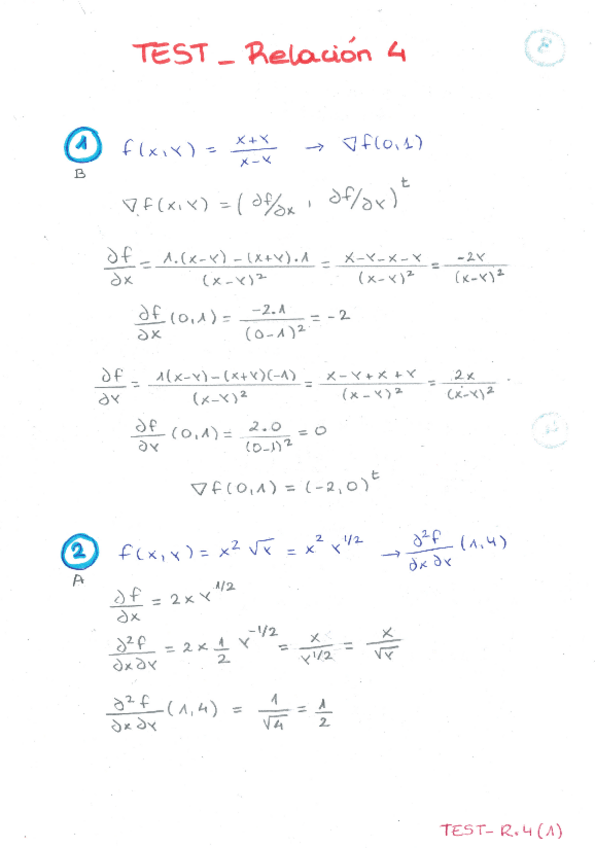 TEST - Relación 4
1 f(x,y) = x+y / x-y → ∇f(0,1)
B
∇f(x,y) = (∂f/∂x , ∂f/∂y)^t
∂f/∂x = 1.(x-y) - (x+y).1 / (x-y)² = x-y-x-y / (x-y)² = -2y / (x-y)²
∂f/∂x (0,1) = -2.1 / (0-1)² = -2
∂f/∂y = 1(x-y)-(x+y)(-1) / (x-y)² = x-y+x+y / (x-y)² = 2x / (x-y)²
∂f/∂y (0,1) = 2.0 / (0-1)² = 0
∇f(0,1) = (-2,0)^t
2 f(x,y) = x² √y = x² y^1/2 → ∂²f/∂x∂y (1,4)
A
∂f/∂x = 2x y^1/2
∂²f/∂x∂y = 2x 1/2 y^-1/2 = x / y^1/2 = x / √y
∂²f/∂x∂y (1,4) = 1 / √4 = 1/2
TEST- R.4(1)